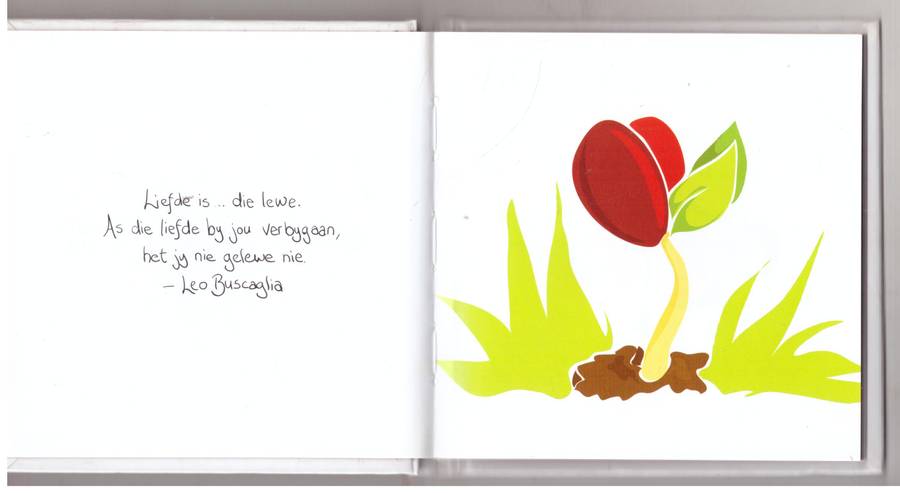 Liefde is .. die lewe.
As die liefde by jou verbygaan,
het jy nie gelewe nie.
– Leo Buscaglia